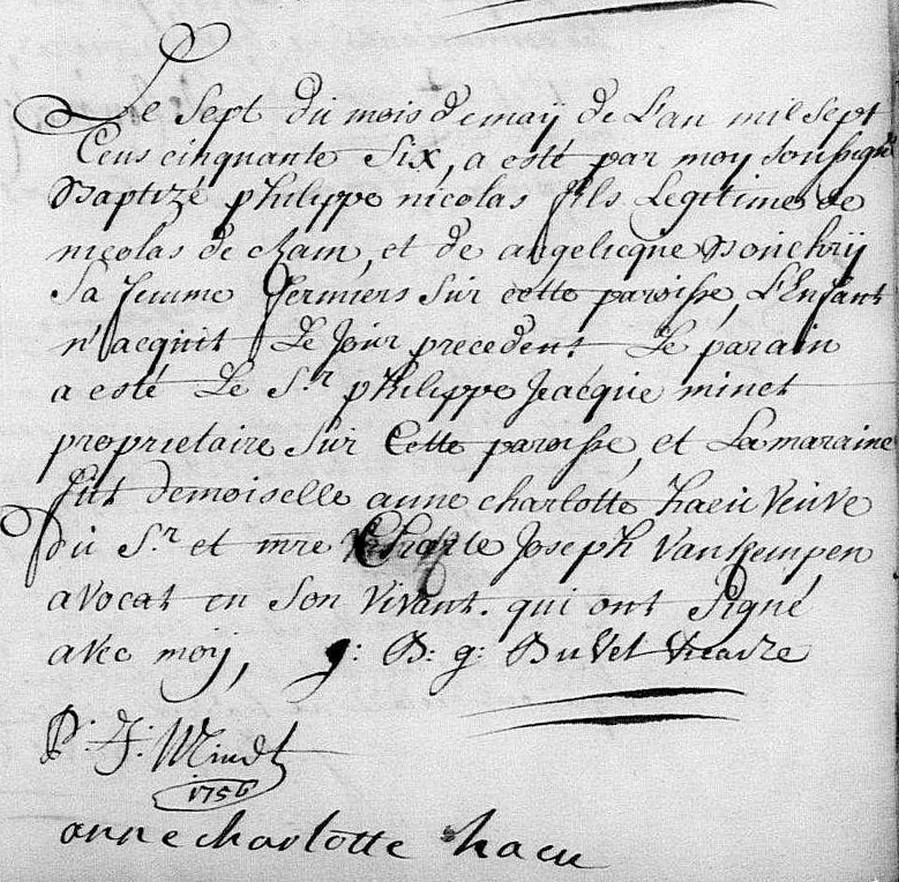 Le Sept du mois de maÿ de L'an mil Sept
Cens cinquante Six, a esté par moy Soussigné
Baptizé philippe nicolas fils Legitime de
nicolas de cham, et de angelicque
Sa femme fermiers Sur cette paroisse, L'Enfant
n'acquit Le Jour precedent Le parain
a esté Le S.r philippe Jeacque minet
proprietaire Sur Cette paroisse, et La maraine
fut demoiselle anne charlotte haeu Veuve
du S.r et mre Charle Joseph Vankempen
avocat en Son Vivant. qui ont Signé
avec moÿ, g: B: g: Buvet Vicaire
P: J: Minet
1756
anne charlotte haeu